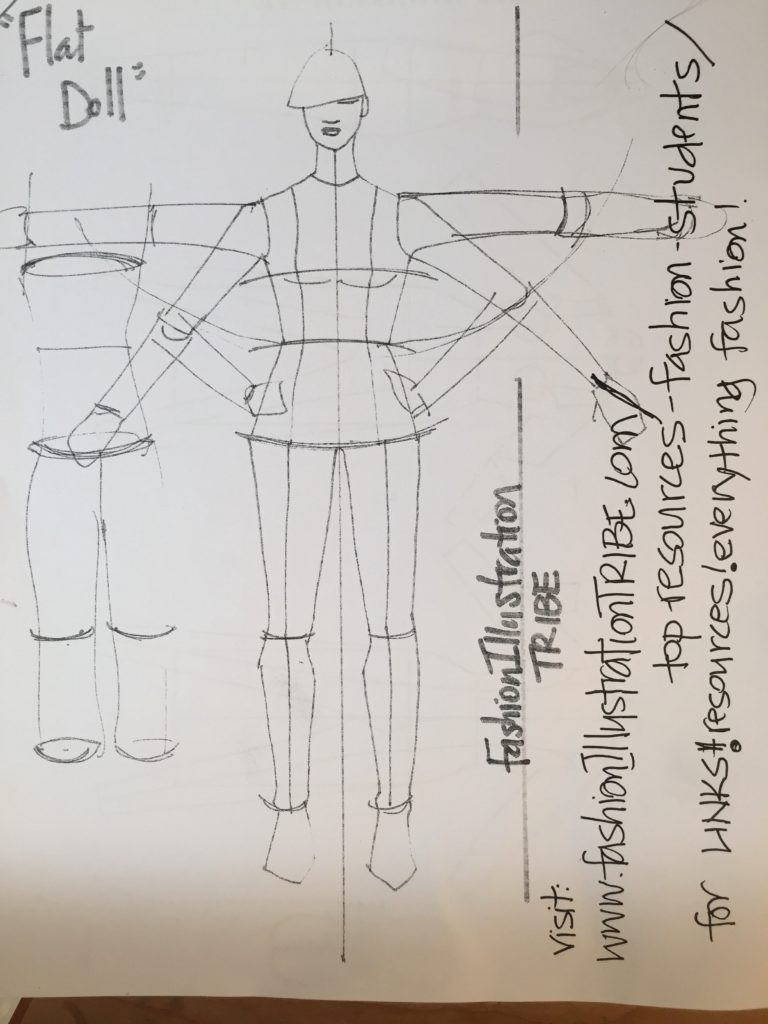 "Flat
Doll"
FashionIllustration
TRIBE
visit:
www.fashionIllustrationTRIBE.com/
top-resources-fashion-students/
for LINKS#resources!everything fashion!